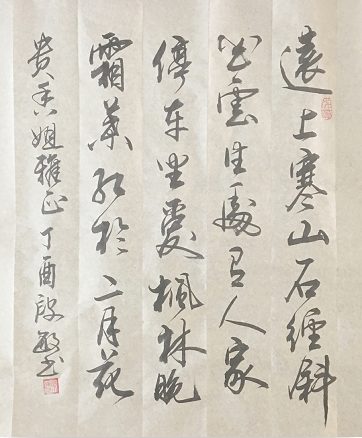 遠上寒山石徑斜
白雲生處有人家
停车坐愛楓林晚
霜葉紅於二月花
貴姐雅正丁酉殷敏书